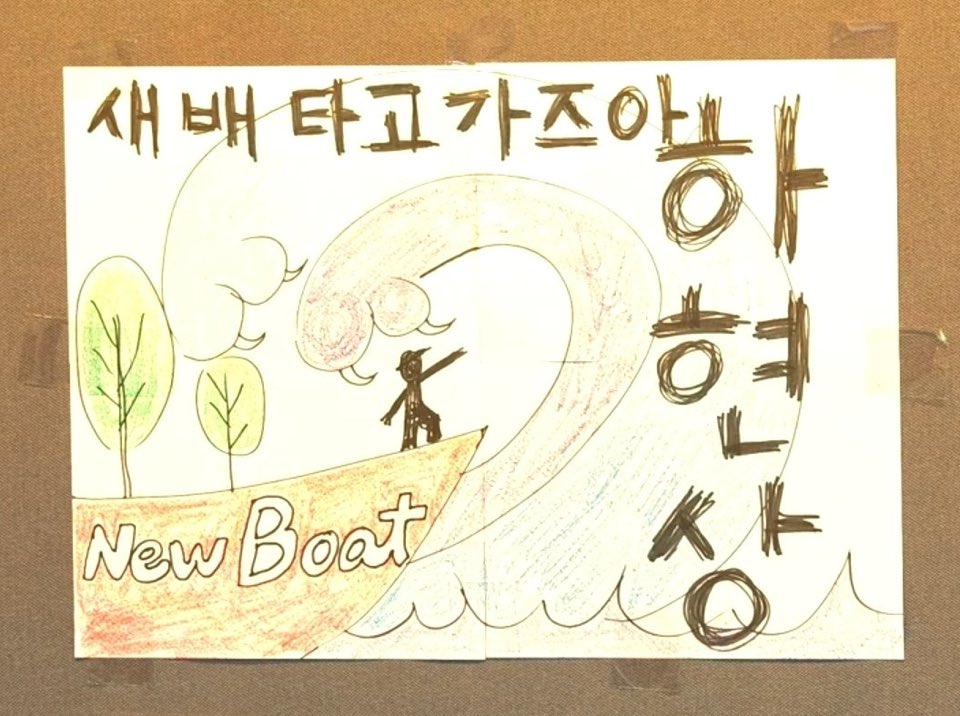 새 배 타고 가즈아
하현상
New Boat